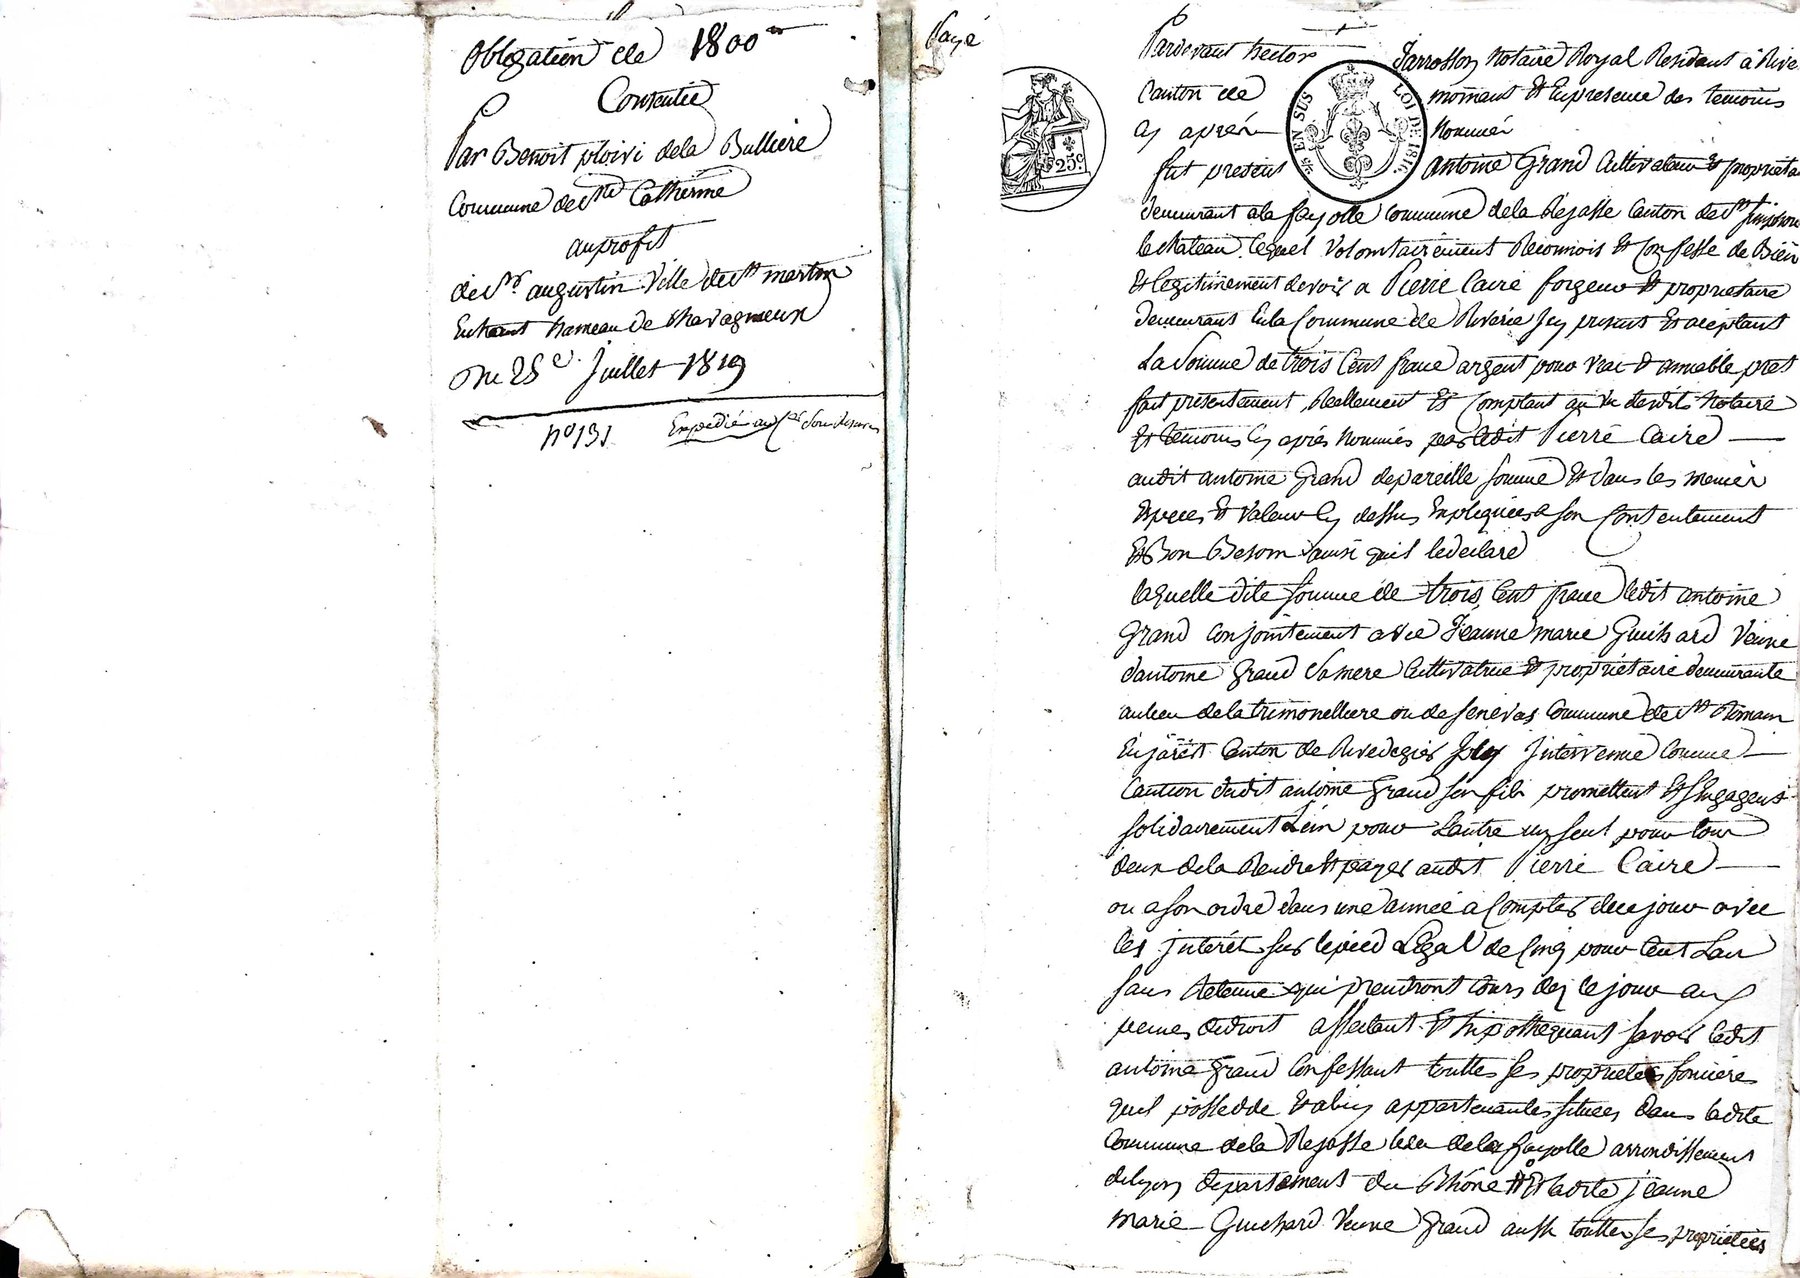 Obligation de 1800 ff
Consentie
Par Benoit ploivi dela Bulliere
Commune de Ste Catherine
au profit
de Sr augustin Ville de St martin
En haut hameau de Chavagneux
Du 25e Juillet 1819
no 131 Expédié au
Payé
Pardevant hector Jarrosson Notaire Royal Residant à Rive
Canton de mornant Et En presence des temoins
Cy aprés Nommés
EN SUS LOI DE 1816
25c.
fut present antoine Grand Cultivateur Et proprieta
demeurant a la fayolle Commune dela Rejasse Canton de St Simphorie
le chateau. lequel Volontairement Reconnois Et Confesse de Bien
Et legitimement devoir a Pierre Caire forgeur Et proprietaire
demeurant En la Commune de Riverie Icy present Et aceptant
La Somme de trois Cent franc argent pour vrai Et amiable pret
fait presentement, Reellement Et Comptant au vu desdits Notaire
Et temoins Cy aprés Nommés par ledit Pierre Caire
audit antoine Grand de pareille somme Et dans les memes
Especes Et valeur Cy dessus Expliquées a son Contentement
Et Bon Besoin ainsi quil le déclare
laquelle dite somme de trois Cent franc ledit antoine
Grand Conjointement avec Jeanne marie Guichard Veuve
dantoine Grand Sa mere Cultivatrice Et proprietaire demeurante
au lieu de la trimonelliere ou de senevas Commune de St Romain
En jarest Canton de Rivedegier Icy Intervenue Comme
Caution dudit antoine Grand son fils promettent Et s'Engagent
solidairement Lun pour Lautre un seul pour tous
deux de la Rendre Et payer audit Pierre Caire
ou a son ordre dans une année a Compter de ce jour avec
les Interét sur le pied Legal de Cinq pour Cent Lan
sans Retenue qui prendront Cours dez ce jour aux
peines de droit affectant Et hipothequant savoir ledit
antoine Grand Confessant touttes ses proprietés foncieres
quil possedde Et a luy appartenantes situées Dans ladite
Commune de la Rejasse lieu de la fayolle arrondissement
de lyon departement du Rhône Et ladite jeanne
marie Guichard Veuve Grand aussi touttes ses proprietées